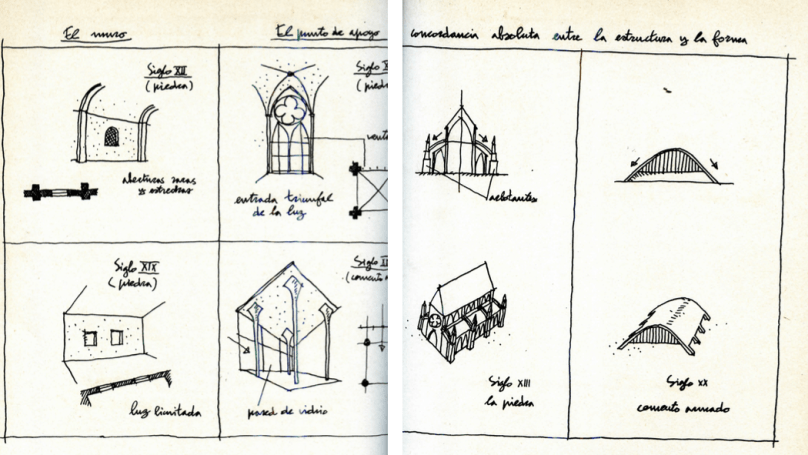 El muro
El punto de apoyo
Siglo XII
(piedra)
aberturas raras
y estrechas
Siglo
entrada triunfal
de la luz
Siglo XIX
(piedra)
luz limitada
Siglo
(cemento
pared de vidrio
concordancia absoluta entre la estructura y la forma
arbotantes
Siglo XIII
la piedra
Siglo XX
cemento armado